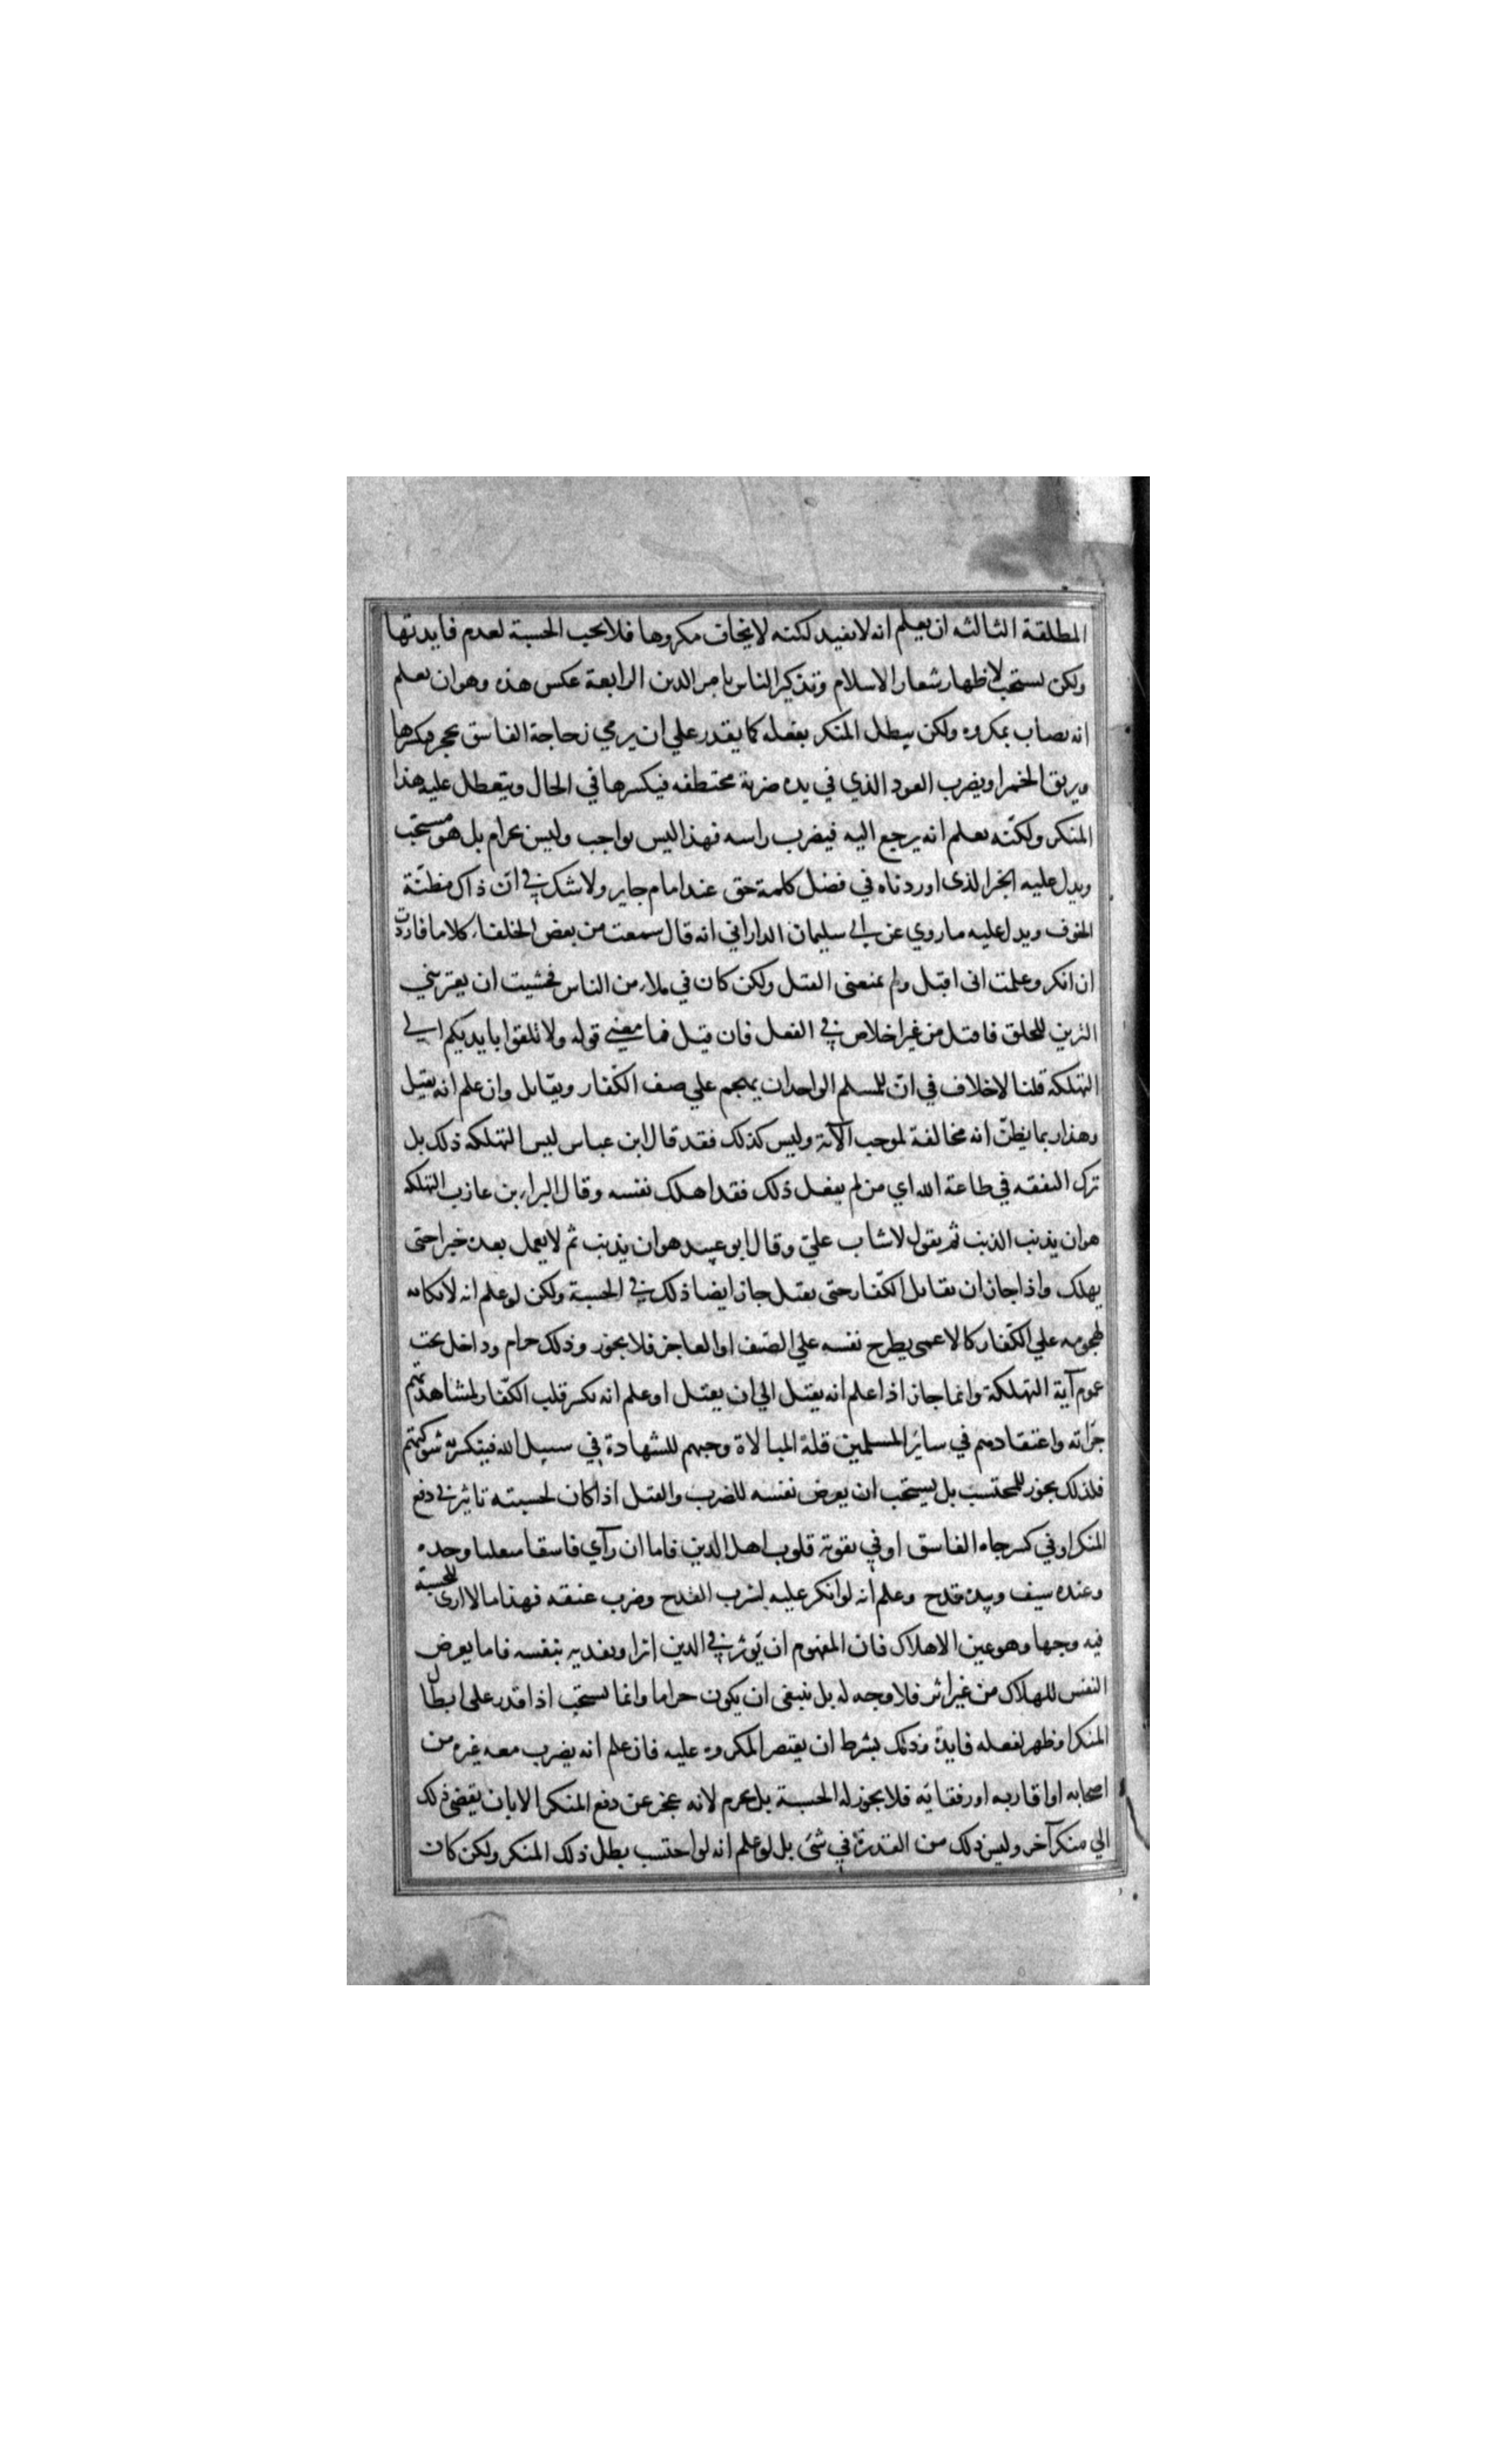 المطلقة الثالثه ان يعلم انه لا يفيد لكنه لا يخاف مكروها فلا يجب الحسبة لعدم فايدتها
ولكن يستحب لاظهار شعار الاسلام وتذكير الناس بامر الدين الرابعة عكس هذه وهو ان يعلم
انه يصاب بمكروه ولكن يبطل المنكر بفعله كما يقدر علي ان يرمي زجاجة الفاسق بحجر فيكسرها
ويريق الخمر او يضرب العود الذي في يده ضربة مختطفه فيكسرها في الحال ويتعطل عليه هذا
المنكر ولكنّه يعلم انه يرجع اليه فيضرب راسه فهذا ليس بواجب وليس بحرام بل هو مستحب
ويدل عليه الخبر الذى اوردناه في فضل كلمة حق عند امام جاير ولا شك في انّ ذاك مظنّة
الخوف ويدل عليه ما روي عن ابي سليمان الداراني انه قال سمعت من بعض الخلفاء كلاما فاردت
ان انكر وعلمت انى اقتل ولم يمنعنى القتل ولكن كان في ملاء من الناس فخشيت ان يعتريني
التزين للخلق فاقتل من غير اخلاص في الفعل فان قيل فما معني قوله ولا تلقوا بايديكم الي
التهلكة قلنا لا خلاف في انّ للمسلم الواحد ان يهجم علي صف الكفّار ويقاتل وان علم انه يقتل
وهذا ربما يظنّ انه مخالفة لموجب الآية وليس كذلك فقد قال ابن عباس ليس التهلكه ذلك بل
ترك النفقه في طاعة الله اي من لم يفعل ذلك فقد اهلك نفسه وقال البراء بن عازب التهلكه
هو ان يذنب الذنب ثم يقول لا يتاب عليّ وقال ابو عبيد هو ان يذنب ثم لا يعمل بعده خيرا حتى
يهلك واذا جاز ان يقاتل الكفّار حتى يقتل جاز ايضا ذلك في الحسبة ولكن لو علم انه لا نكايه
لهجومه علي الكفّار كالاعمى يطرح نفسه علي الصّف او العاجز فلا يجوز وذلك حرام وداخل تحت
عموم آية التهلكة وانما جاز اذا علم انه يقتل الي ان يقتل او علم انه يكسر قلب الكفّار لمشاهدتهم
جراته واعتقادهم في سائر المسلمين قلة المبالاة وحبهم للشهادة في سبيل الله فينكسر به شوكتهم
فلذلك يجوز للمحتسب بل يستحب ان يعرض نفسه للضرب والقتل اذا كان لحسبته تاثير في دفع
المنكر او في كسر جاه الفاسق او في تقوية قلوب اهل الدين فاما ان رآي فاسقا متغلبا وحده
وعنده سيف وبيده قدح وعلم انه لو انكر عليه لشرب القدح وضرب عنقه فهذا ما لا ارى للحسبة
فيه وجها وهو عين الاهلاك فان المفهوم ان يؤثر في الدين اثرا ويفديه بنفسه فاما يعرض
النفس للهلاك من غير اثر فلا وجه له بل ينبغى ان يكون حراما وانما يستحب اذا قدر على ابطال
المنكر او ظهر لفعله فايدة وذلك بشرط ان يقتصر المكروه عليه فان علم انه يضرب معه غيره من
اصحابه او اقاربه او رفقايه فلا يجوز له الحسبة بل يحرم لانه عجز عن دفع المنكر الا بان يفضى ذلك
الي منكر آخر وليس ذلك من القدرة في شئ بل لو علم انه لو احتسب بطل ذلك المنكر ولكن كان